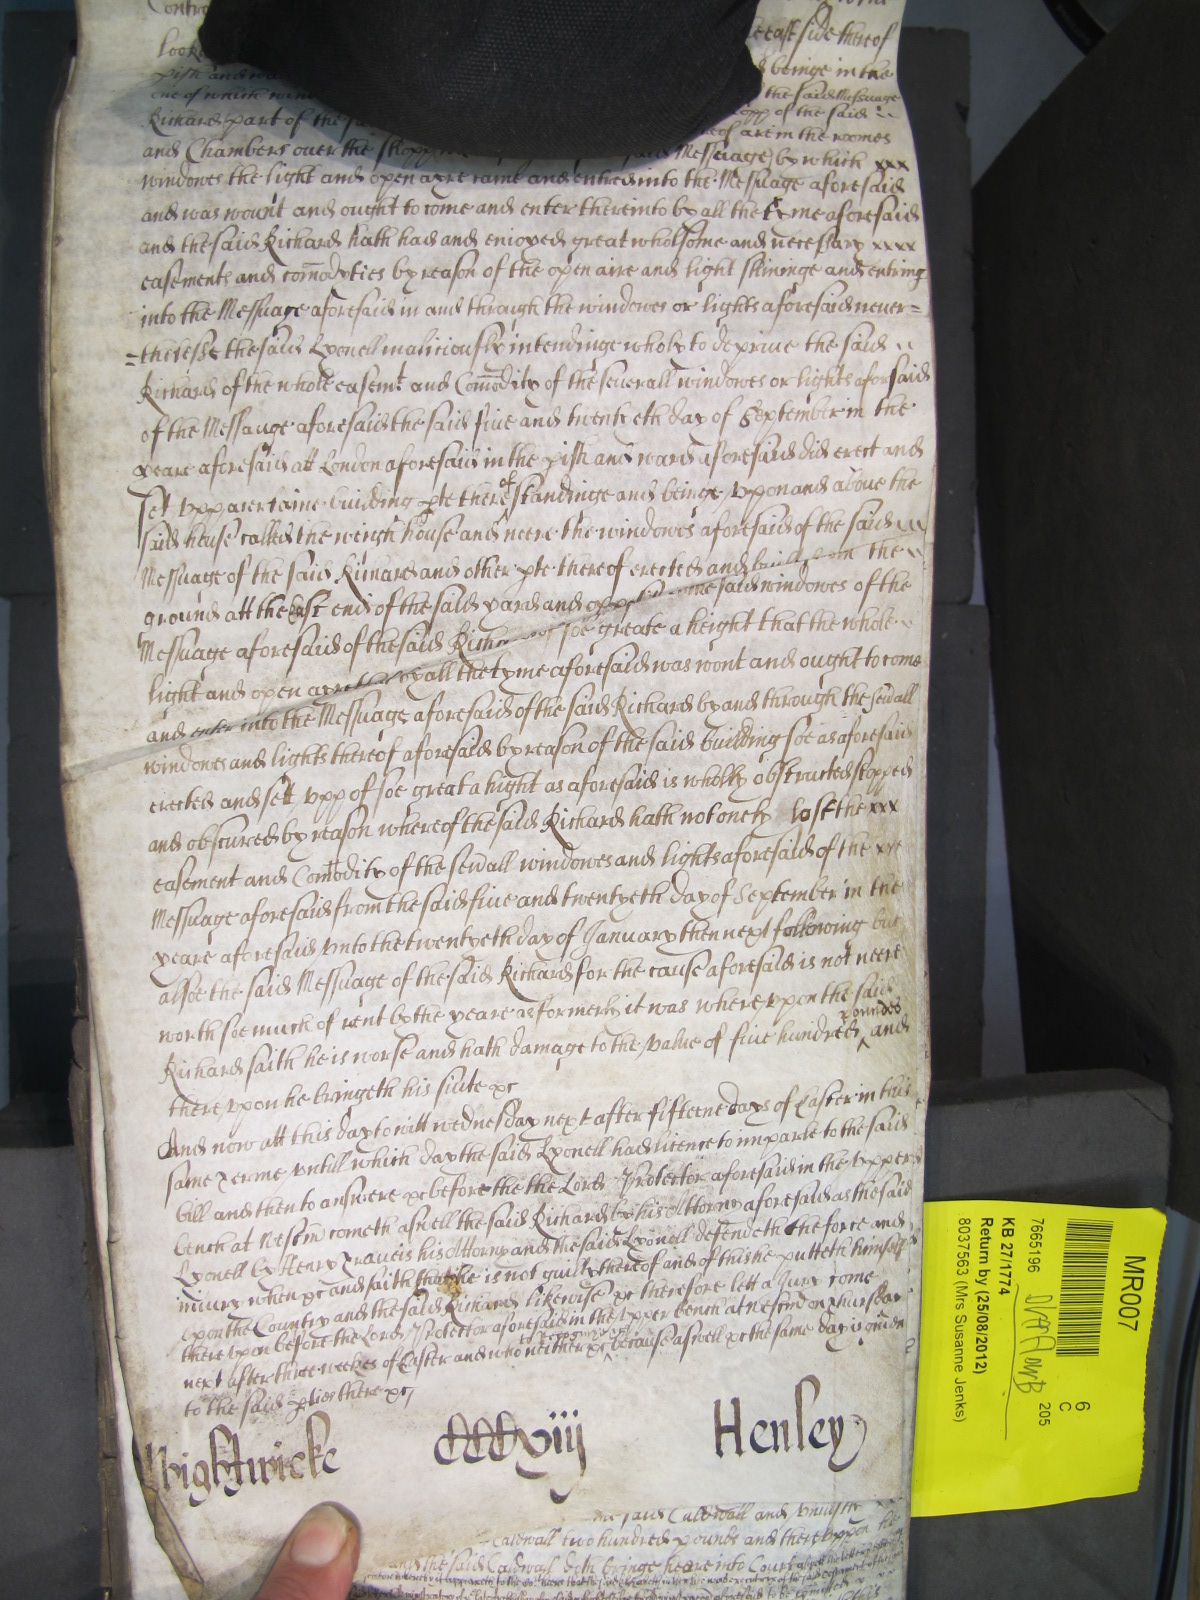 looke east side thereof
beinge in the
one of which the said Messuage
Richard part of the of the said
and Chambers over the shopp are in the roomes
Messuage) by which xxx
windowes the light and open ayre came and entred into the Messuage aforesaid
and was wount and ought to come and enter thereinto by all the tyme aforesaid
and the said Richard hath had and enioyed great wholsome and necessary xxxx
easements and comodyties by reason of the open aire and light shininge and entring
into the Messuage aforesaid in and through the windowes or lights aforesaid never=
=thelesse the said Lyonell maliciously intendinge wholy to deprive the said
Richard of the whole easemt and Comodity of the severall windowes or lights aforsaid
of the Messauge aforesaid the said five and twentyeth day of September in the
yeare aforesaid att London aforesaid in the pish and ward aforesaid did erect and
set upp a certaine building pte thereof standinge and beinge upon and above the
said house called the weigh house and neere the windowes aforesaid of the said
Messuage of the said Richard and other pte thereof erected and built upon the
ground att the East end of the said yard and said windowes of the
Messuage aforesaid of the said Richard of soe greate a height that the whole
light and open ayre by all the tyme aforesaid was wont and ought to come
and enter into the Messuage aforesaid of the said Richard by and through the sevall
windowes and lights thereof aforesaid by reason of the said building soe as aforesaid
erected and sett upp of soe great a hight as aforesaid is wholly obstructed stopped
and obscured by reason whereof the said Richard hath not onely lost the xxx
easement and Comodity of the sevall windowes and lights aforesaid of the xxx
Messuage aforesaid from the said five and twentyeth day of September in the
yeare aforesaid unto the twentyeth day of January then next following but
alsoe the said Messuage of the said Richard for the cause aforesaid is not neere
worth soe much of rent by the yeare as formerly it was whereupon the said
Richard saith he is worse and hath damage to the value of five hundred pounds and
thereupon he bringeth his suite &c
And now att this day to witt wednesday next after fifteene dayes of Easter in this
same Terme untill which day the said Lyonell had licence to imparle to the said
bill and then to answere &c before the the Lord Protector aforesaid in the upper
bench at Westm cometh aswell the said Richard by his Attorny aforesaid as the said
Lyonell by Henry Travers his Attorny and the said Lyonell defendeth the force and
iniury when &c and saith that he is not guilty thereof and of this he putteth himself
upon the Country and the said Richard likewise &c therefore lett a Jury come
thereupon before the Lord Protector aforesaid in the upper bench at Westm on thursday
next after three weekes of Easter and who neither &c to recognize &c because aswell &c the same day is given
to the said pties there &c
Wightwicke cccxiij Henley
the said Caldwall and
Caldwall two hundred pounds and thereuppon the
and the said Caldwall doth bringe heare into Court
MR007
6
C
205
7665196
KB 27/1774
Return by (25/08/2012)
8037563 (Mrs Susanne Jenks)